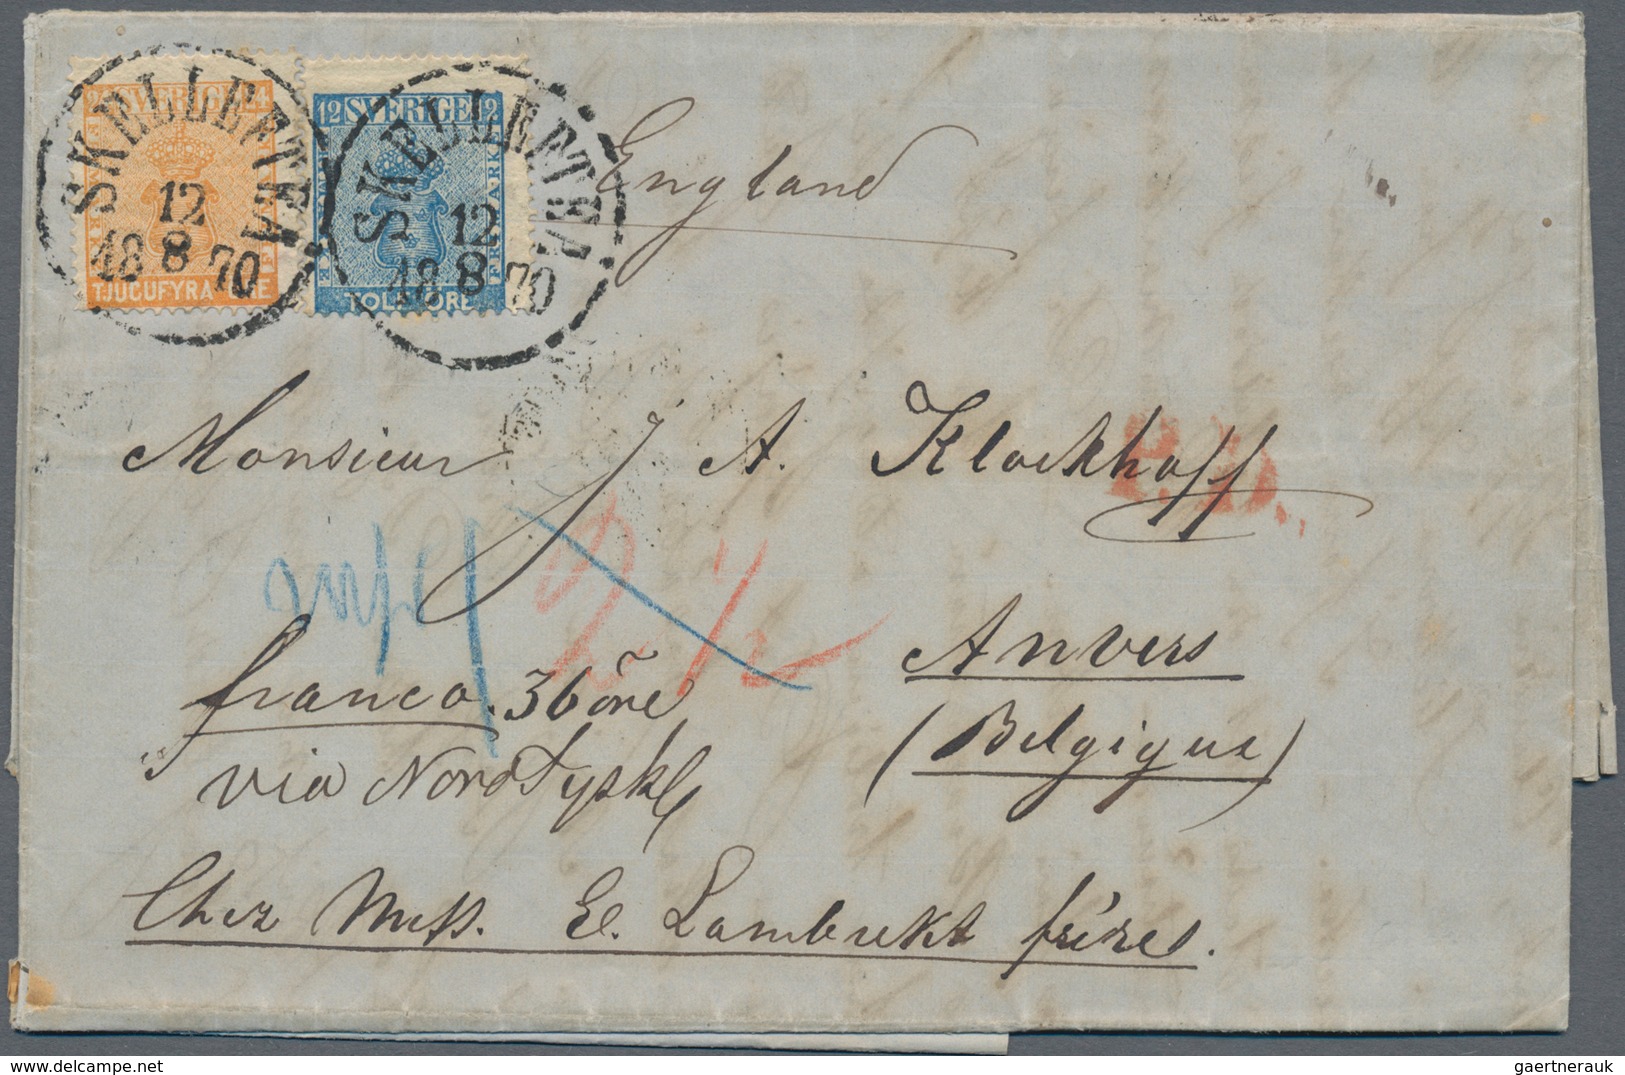 24 SVERIGE 24
TJUGUFYRA ÖRE
SKELLEFTEÅ
12
8
18 70
12 SVERIGE 12
FRIMARKE
TOLF ÖRE
SKELLEFTEÅ
12
8
18 70
England
Monsieur J A. Klockhoff
P.D.
2 1/2
Anvers
franco. 36 öre
(Belgique)
via Nordtyskl
Chez Mess. E. Lambrekt frères.
gaertnerauk